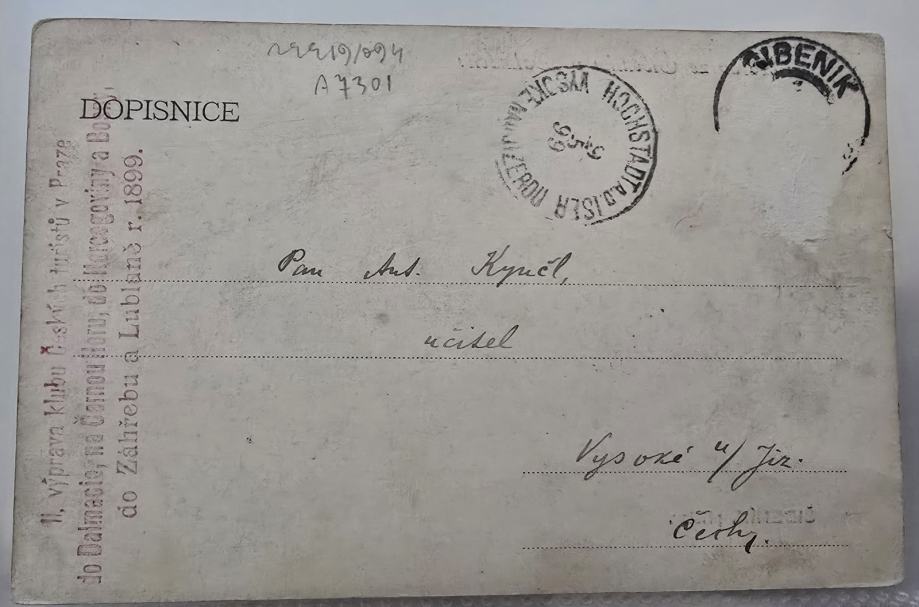 A7301
DOPISNICE
ŠIBENIK
HOCHSTADT A.D. ISER
VYSOKÉ NAD JIZEROU
9/5
99
Pan Ant. Kynčl,
učitel
Vysoké n/Jiz.
Čechy.
II. výprava klubu Českých turistů v Praze
do Dalmacie, na Černou Horu, do Hercegoviny a
do Záhřebu a Lublaně r. 1899.